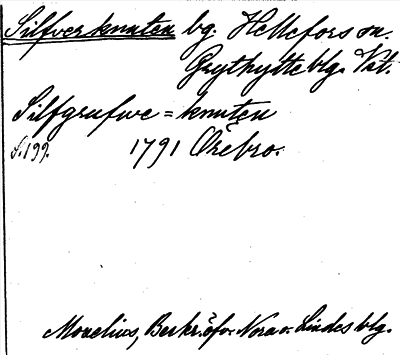 Silfverknuten bg. Hellefors sn.
Grythytte blg. Vstl.
Silfgrufwe=knuten
S.199. 1791 Örebro.
Morelius, Beskr. öfv. Nora o. Lindes blg.